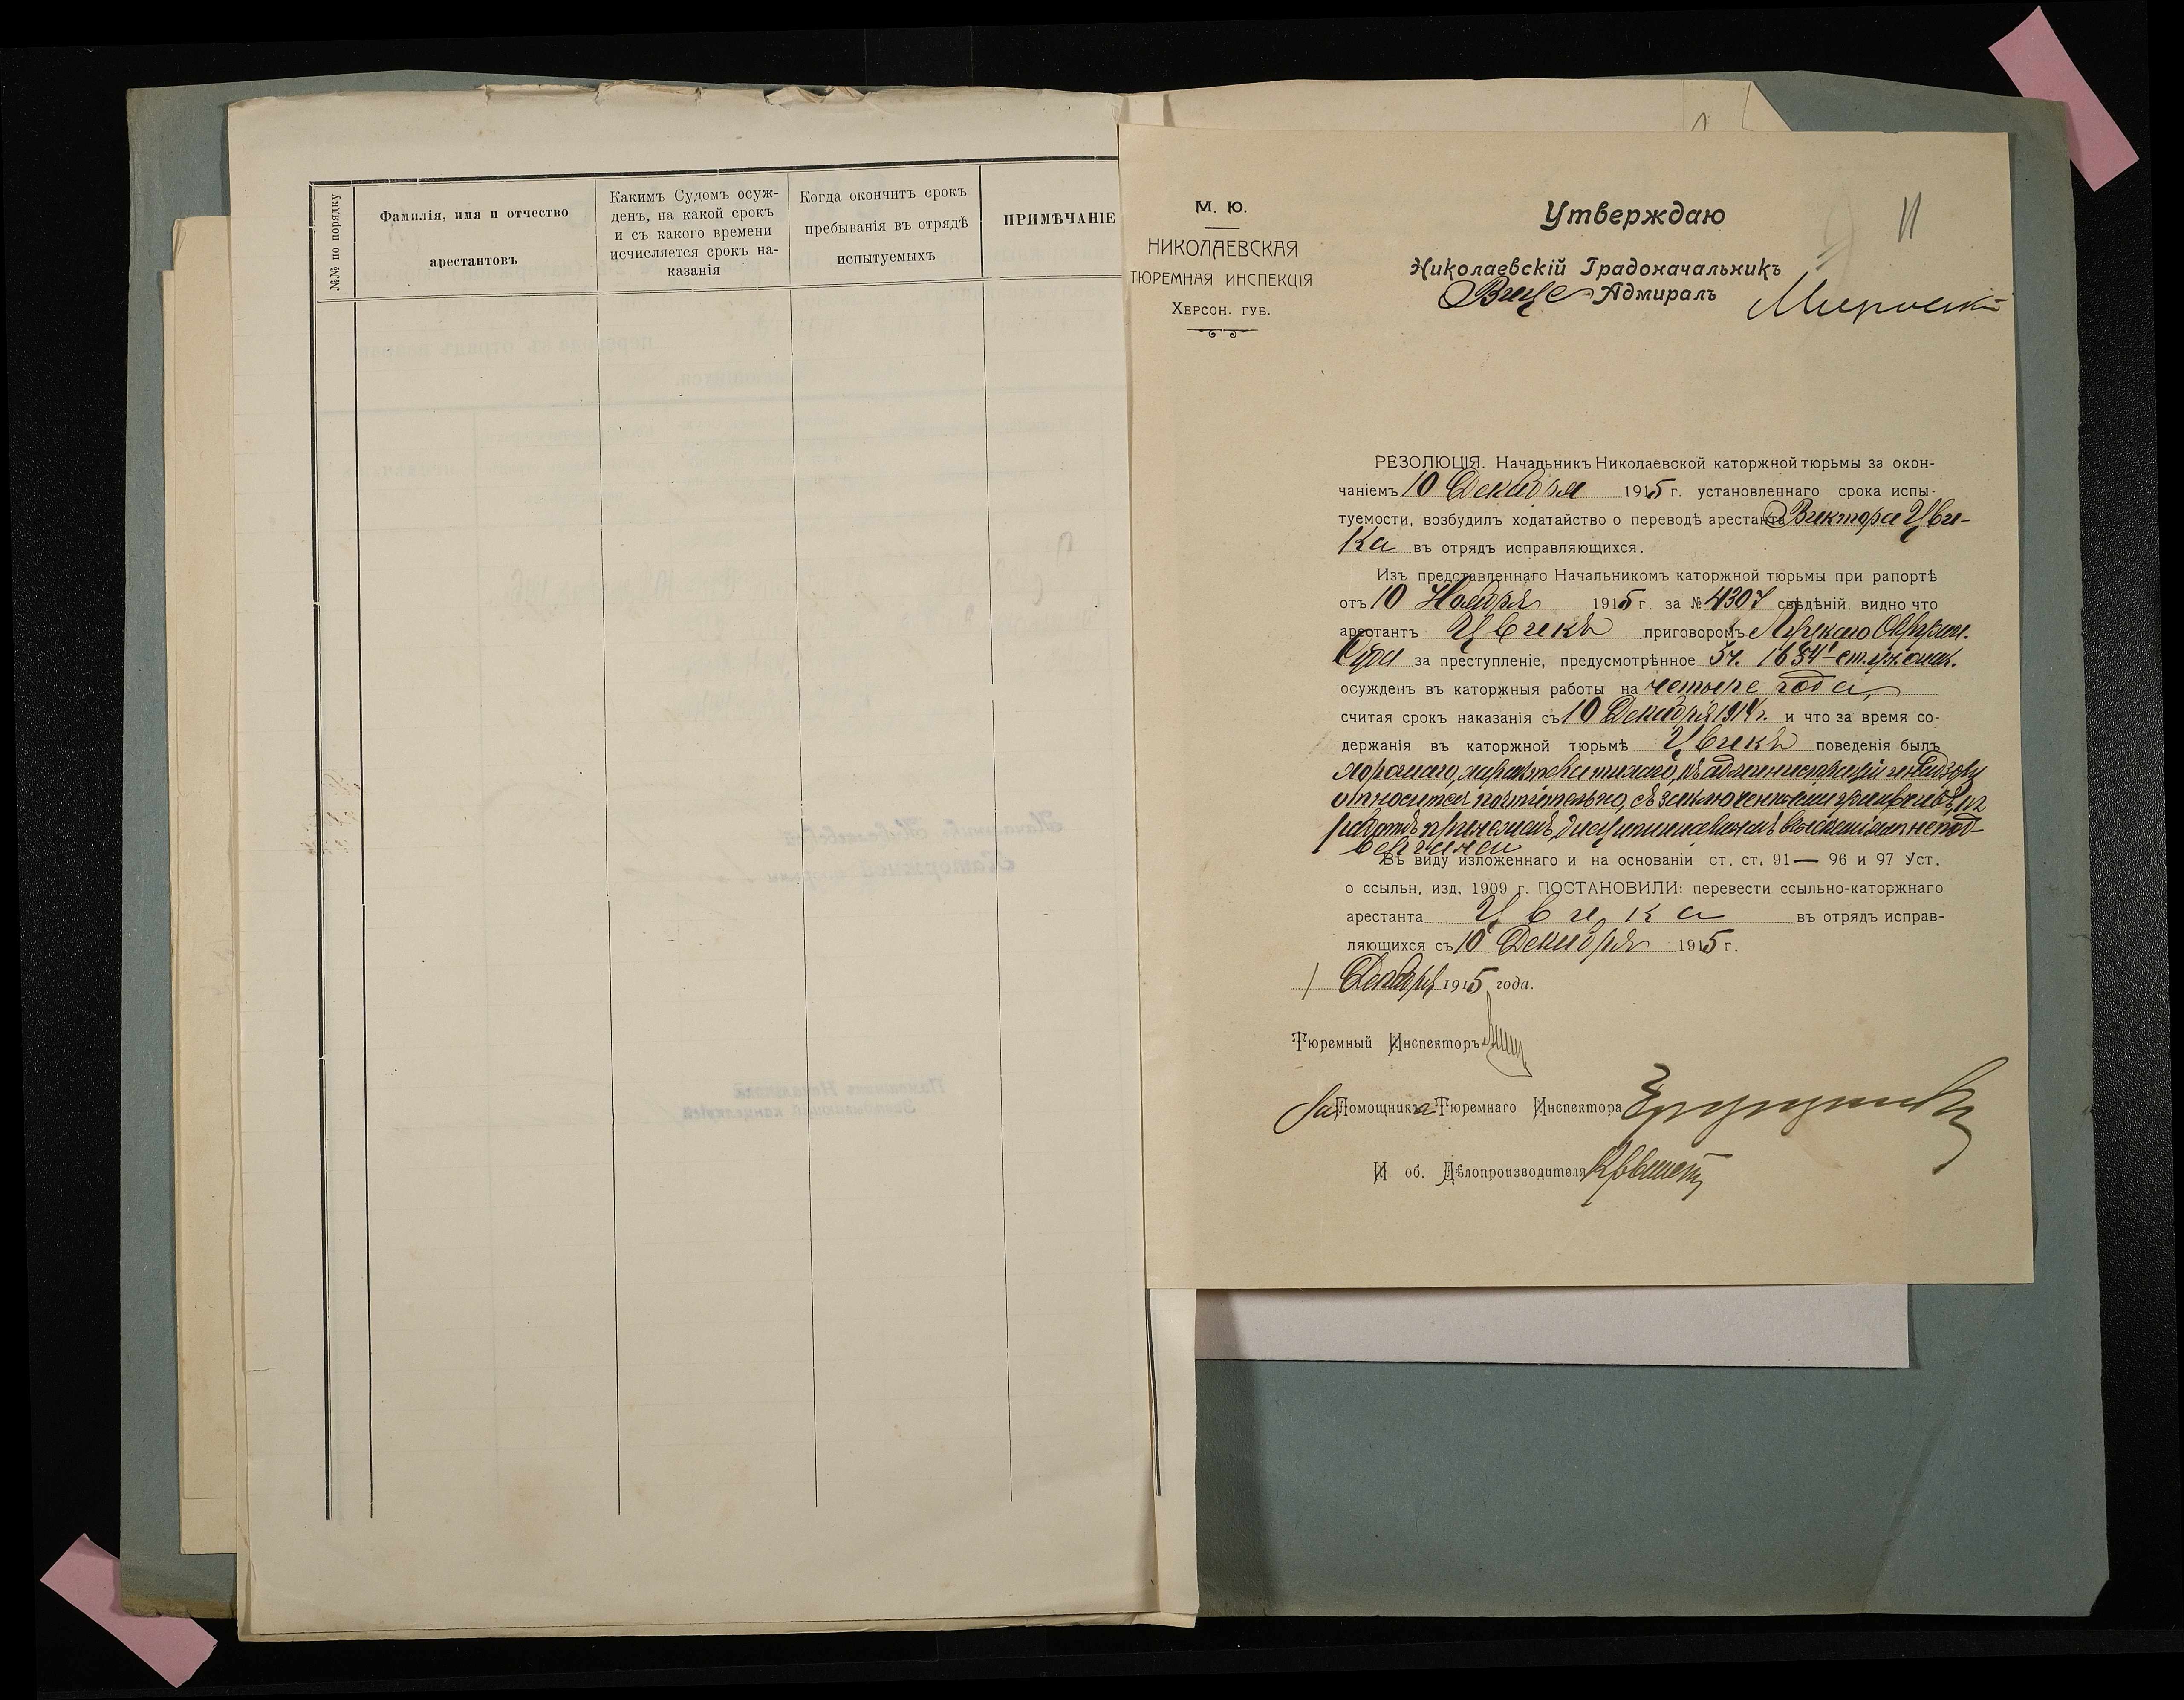 №№ по порядку
Фамилія, имя и отчество
арестантовъ
Какимъ Судомъ осуж-
денъ, на какой срокъ
и съ какого времени
исчисляется срокъ на-
казанія
Когда окончитъ срокъ
пребыванія въ отрядѣ
испытуемыхъ
ПРИМѢЧАНІЕ
М. Ю.
НИКОЛАЕВСКАЯ
ТЮРЕМНАЯ ИНСПЕКЦІЯ
ХЕРСОН. ГУБ.
11
Утверждаю
Николаевскій Градоначальникъ
Вице Адмиралъ
РЕЗОЛЮЦІЯ. Начальникъ Николаевской каторжной тюрьмы за окон-
чаніемъ 10 Декабря 1915 г. установленнаго срока испы-
туемости, возбудилъ ходатайство о переводѣ арестанта Виктора Цви-
ка въ отрядъ исправляющихся.
Изъ представленнаго Начальникомъ каторжной тюрьмы при рапортѣ
отъ 10 Ноября 1915 г. за № 4307 свѣдѣній видно что
арестантъ Цвикъ приговоромъ Окружн.
Суда за преступленіе, предусмотрѣнное 3 ч. 1654 ст. улож. о нак.
осужденъ въ каторжныя работы на четыре года,
считая срокъ наказанія съ 10 Декабря 1914 г. и что за время со-
держанія въ каторжной тюрьмѣ Цвикъ поведенія былъ
хорошаго, характера тихаго, къ администраціи и надзору
относится почтительно, съ заключенными уживчивъ, къ
работѣ прилеженъ, дисциплинарнымъ взысканіямъ не под-
вергался
Въ виду изложеннаго и на основаніи ст. ст. 91 — 96 и 97 Уст.
о ссыльн. изд. 1909 г. ПОСТАНОВИЛИ: перевести ссыльно-каторжнаго
арестанта Цвика въ отрядъ исправ-
ляющихся съ 10 Декабря 1915 г.
1 Декабря 1915 года.
Тюремный Инспекторъ
За Помощника Тюремнаго Инспектора
И об. Дѣлопроизводителя